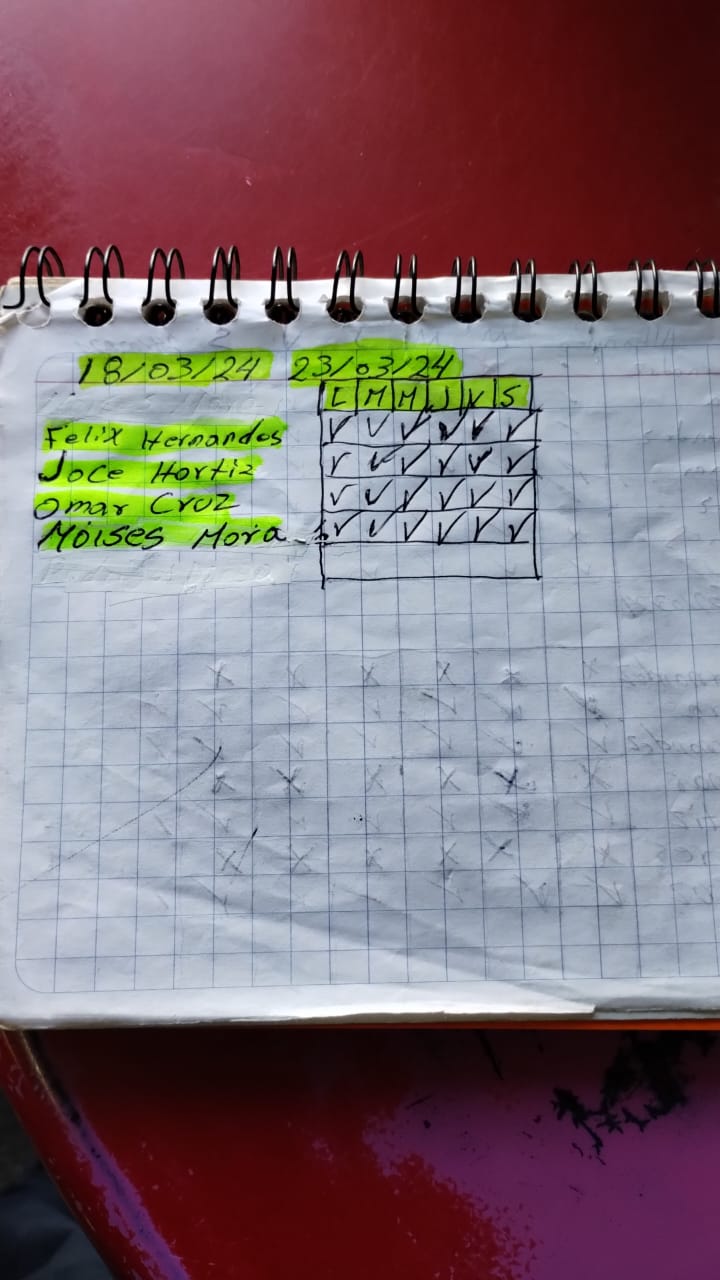 18/03/24 23/03/24
L M M J V S
Felix Hernandes ✓ ✓ ✓ ✓ ✓ ✓
Joce Hortiz ✓ ✓ ✓ ✓ ✓ ✓
Omar Cruz ✓ ✓ ✓ ✓ ✓ ✓
Moises Mora ✓ ✓ ✓ ✓ ✓ ✓